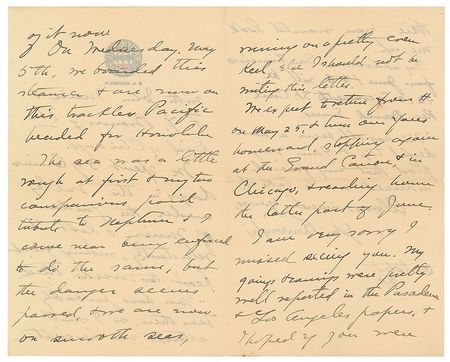 of it now.
On Wednesday, May
5th, we boarded this
steamer & are now on
this trackless Pacific
headed for Honolulu.
The sea was a little
rough at first & my two
companions paid
tribute to Neptune & I
came near being enforced
to do the same, but
the danger seems
passed, & we are now
on smooth seas,
running on a pretty even
keel, else I should not be
writing this letter.
We expect to return from H
on May 25, & turn our faces
homeward, stopping again
at the Grand Canon & in
Chicago, & reaching home
the latter part of June.
I am very sorry I
missed seeing you. My
goings & comings were pretty
well reported in the Pasadena
& Los Angeles papers, &
I hoped if you were